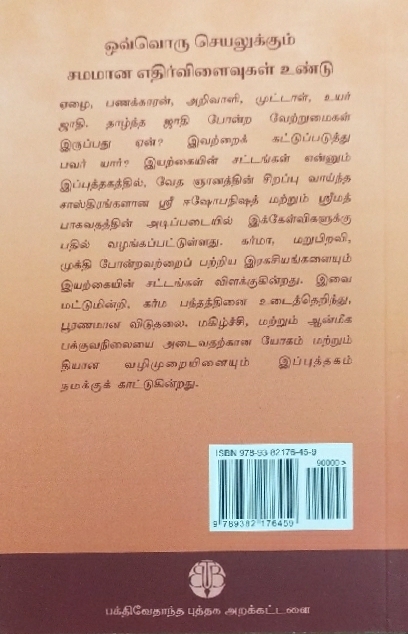 ஒவ்வொரு செயலுக்கும்
சமமான எதிர்விளைவுகள் உண்டு
ஏழை, பணக்காரன், அறிவாளி, முட்டாள், உயர்
ஜாதி, தாழ்ந்த ஜாதி போன்ற வேற்றுமைகள்
இருப்பது ஏன்? இவற்றைக் கட்டுப்படுத்து
பவர் யார்? இயற்கையின் சட்டங்கள் என்னும்
இப்புத்தகத்தில், வேத ஞானத்தின் சிறப்பு வாய்ந்த
சாஸ்திரங்களான ஸ்ரீ ஈஷோபநிஷத் மற்றும் ஸ்ரீமத்
பாகவதத்தின் அடிப்படையில் இக்கேள்விகளுக்கு
பதில் வழங்கப்பட்டுள்ளது. கர்மா, மறுபிறவி,
முக்தி போன்றவற்றைப் பற்றிய இரகசியங்களையும்
இயற்கையின் சட்டங்கள் விளக்குகிறது. இவை
மட்டுமின்றி, கர்ம பந்தத்தினை உடைத்தெறிந்து,
பூரணமான விடுதலை, மகிழ்ச்சி, மற்றும் ஆன்மீக
பக்குவநிலையை அடைவதற்கான யோகம் மற்றும்
தியான வழிமுறையினையும் இப்புத்தகம்
நமக்குக் காட்டுகின்றது.
ISBN 978-93-82176-45-9
90000>
9 789382 176459
BBT
பக்திவேதாந்த புத்தக அறக்கட்டளை